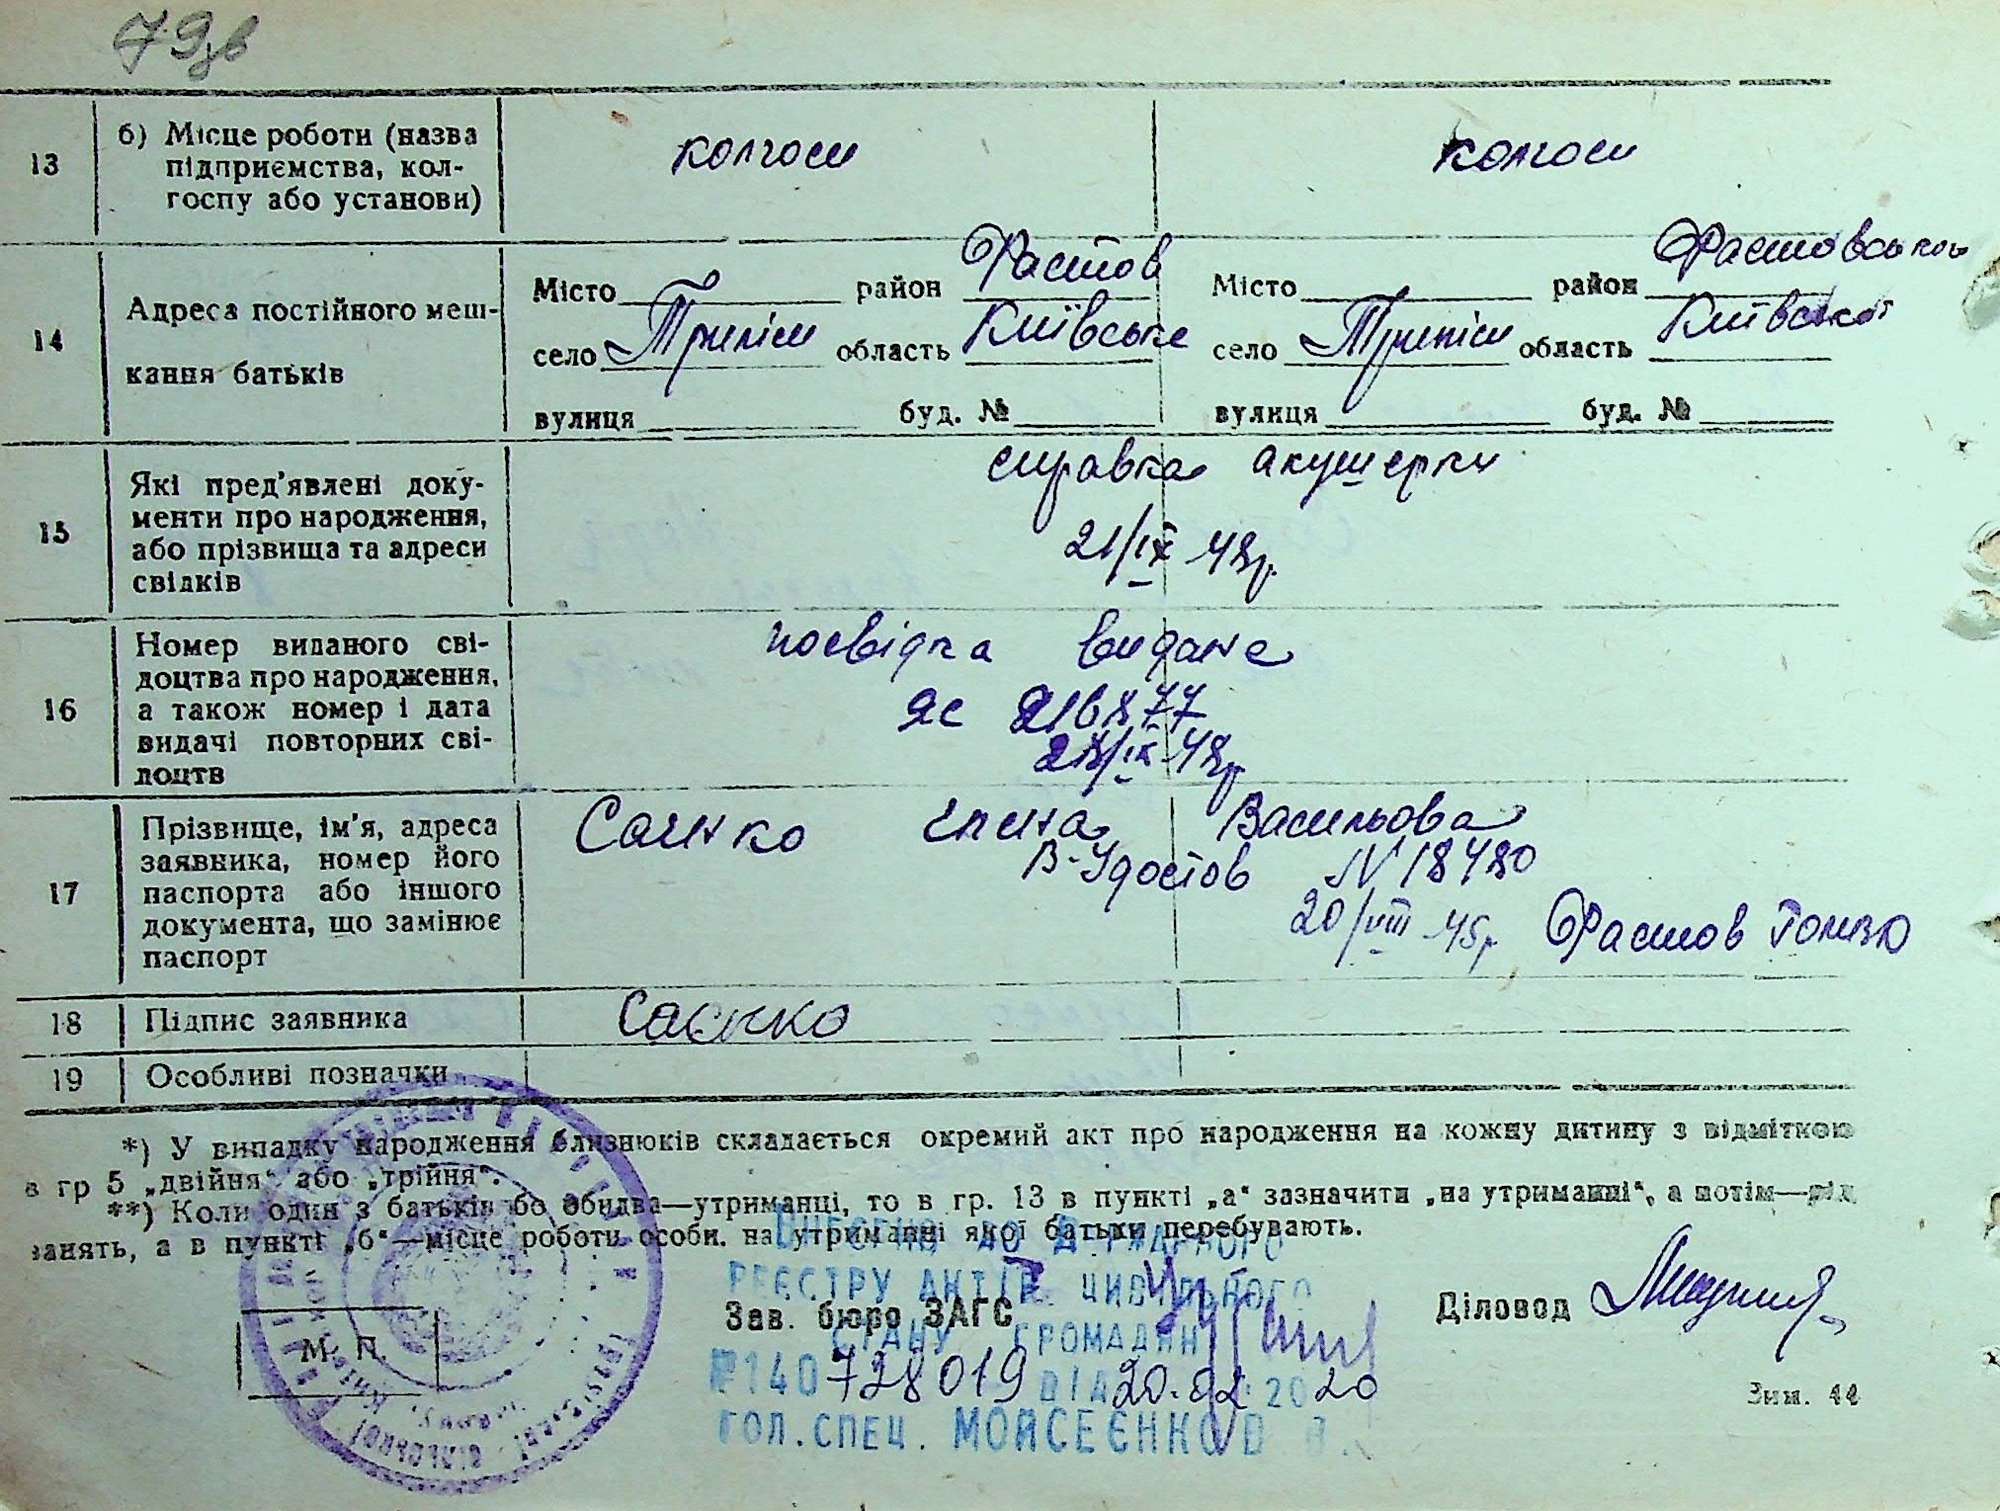 79зв
13
б) Місце роботи (назва
підприємства, кол-
госпу або установи)
колгосп
колгосп
14
Адреса постійного меш-
кання батьків
Місто район Фастов
село Триліси область Київське
вулиця буд. №
Місто район Фастовського
село Триліси область Київської
вулиця буд. №
15
Які пред'явлені доку-
менти про народження,
або прізвища та адреси
свідків
справка акушерки
21/IX 48р.
16
Номер виданого сві-
доцтва про народження,
а також номер і дата
видачі повторних сві-
доцтв
посвідка видане
ЯС 216877
28/IX 48р
17
Прізвище, ім'я, адреса
заявника, номер його
паспорта або іншого
документа, що замінює
паспорт
Саєнко Елена Васильова
В-Удостов N 18480
20/VIII 45р. Фастов
18
Підпис заявника
Саєнко
19
Особливі позначки
*) У випадку народження близнюків складається окремий акт про народження на кожну дитину з відміткою
в гр 5 „двійня“ або „трійня“.
**) Коли один з батьків бо обидва—утриманці, то в гр. 13 в пункті „а“ зазначити „на утриманні“, а потім—рід
занять, а в пункті „б“—місце роботи особи, на утриманні якої батьки перебувають.
ВНЕСЕНО ДО ДЕРЖАВНОГО
РЕЄСТРУ АКТІВ ЦИВІЛЬНОГО
Зав. бюро ЗАГС
Діловод
СТАНУ ГРОМАДЯН
М. П.
№140728019 ВІД 20.02 2020
Зам. 44
ГОЛ.СПЕЦ. МОЙСЕЄНКО В.